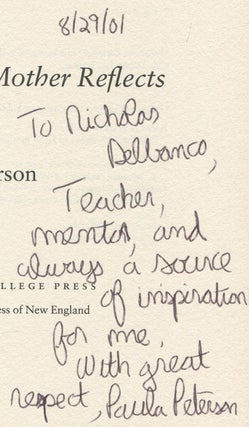 8/29/01
Mother Reflects
To Nicholas
Delbanco,
rson
Teacher,
mentor, and
always a source
LLEGE PRESS
of inspiration
ess of New England
for me,
With great
respect, Paula Peterson